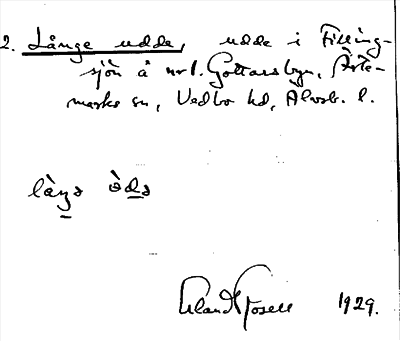 2. Långe udde, udde i Filling-
sjön å nr 1. Gottarsbyn, Ärte-
marks sn, Vedbo hd, Älvsb. l.
làŋə ùdə
Erland Rosell 1929.